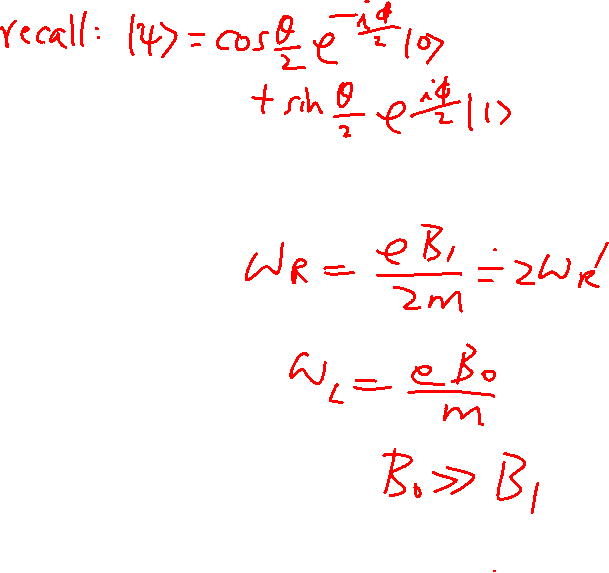 recall: |ψ> = cos θ/2 e^{-iϕ/2} |0>
+ sin θ/2 e^{iϕ/2} |1>
ω_R = eB₁/2m ≐ 2ω_R'
ω_L = eB₀/m
B₀ ≫ B₁